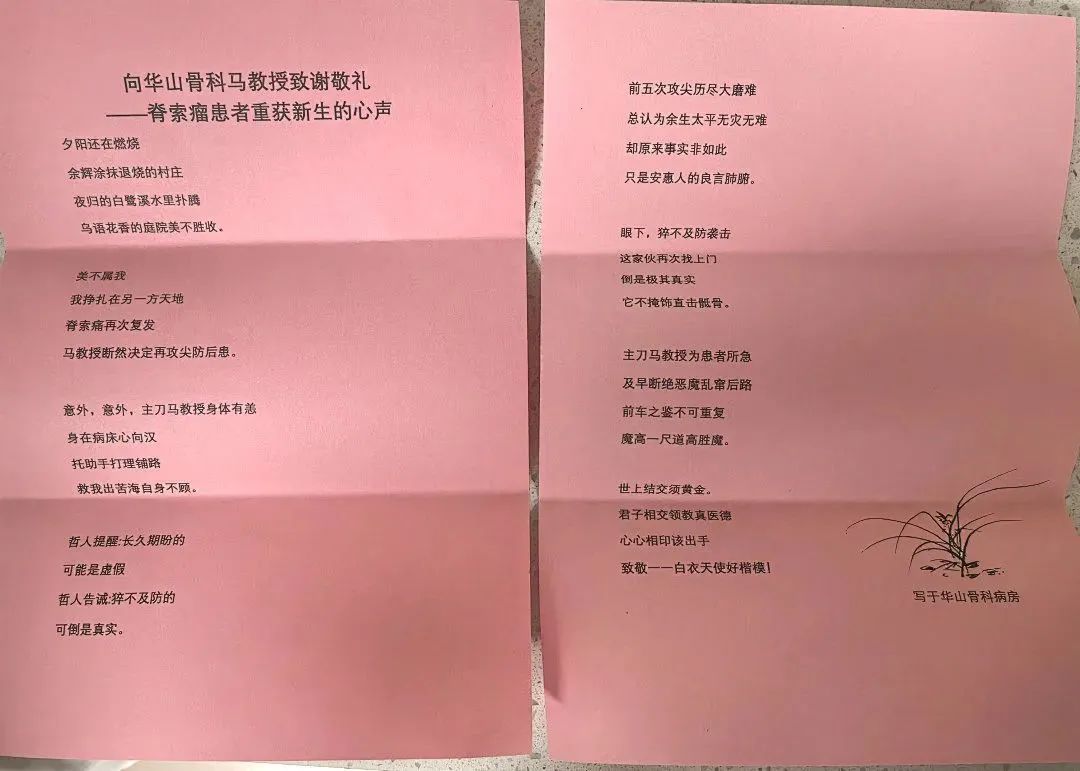 向华山骨科马教授致谢敬礼
——脊索瘤患者重获新生的心声
夕阳还在燃烧
余辉涂抹退烧的村庄
夜归的白鹭溪水里扑腾
鸟语花香的庭院美不胜收。
美不属我
我挣扎在另一方天地
脊索痛再次复发
马教授断然决定再攻尖防后患。
意外，意外，主刀马教授身体有恙
身在病床心向汉
托助手打理铺路
救我出苦海自身不顾。
哲人提醒:长久期盼的
可能是虚假
哲人告诫:猝不及防的
可倒是真实。
前五次攻尖历尽大磨难
总认为余生太平无灾无难
却原来事实非如此
只是安惠人的良言肺腑。
眼下，猝不及防袭击
这家伙再次找上门
倒是极其真实
它不掩饰直击骶骨。
主刀马教授为患者所急
及早断绝恶魔乱窜后路
前车之鉴不可重复
魔高一尺道高胜魔。
世上结交须黄金。
君子相交领教真医德
心心相印该出手
致敬——白衣天使好楷模！
写于华山骨科病房